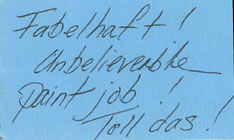 Fabelhaft!
Unbelieverble
paint job!
Toll das!